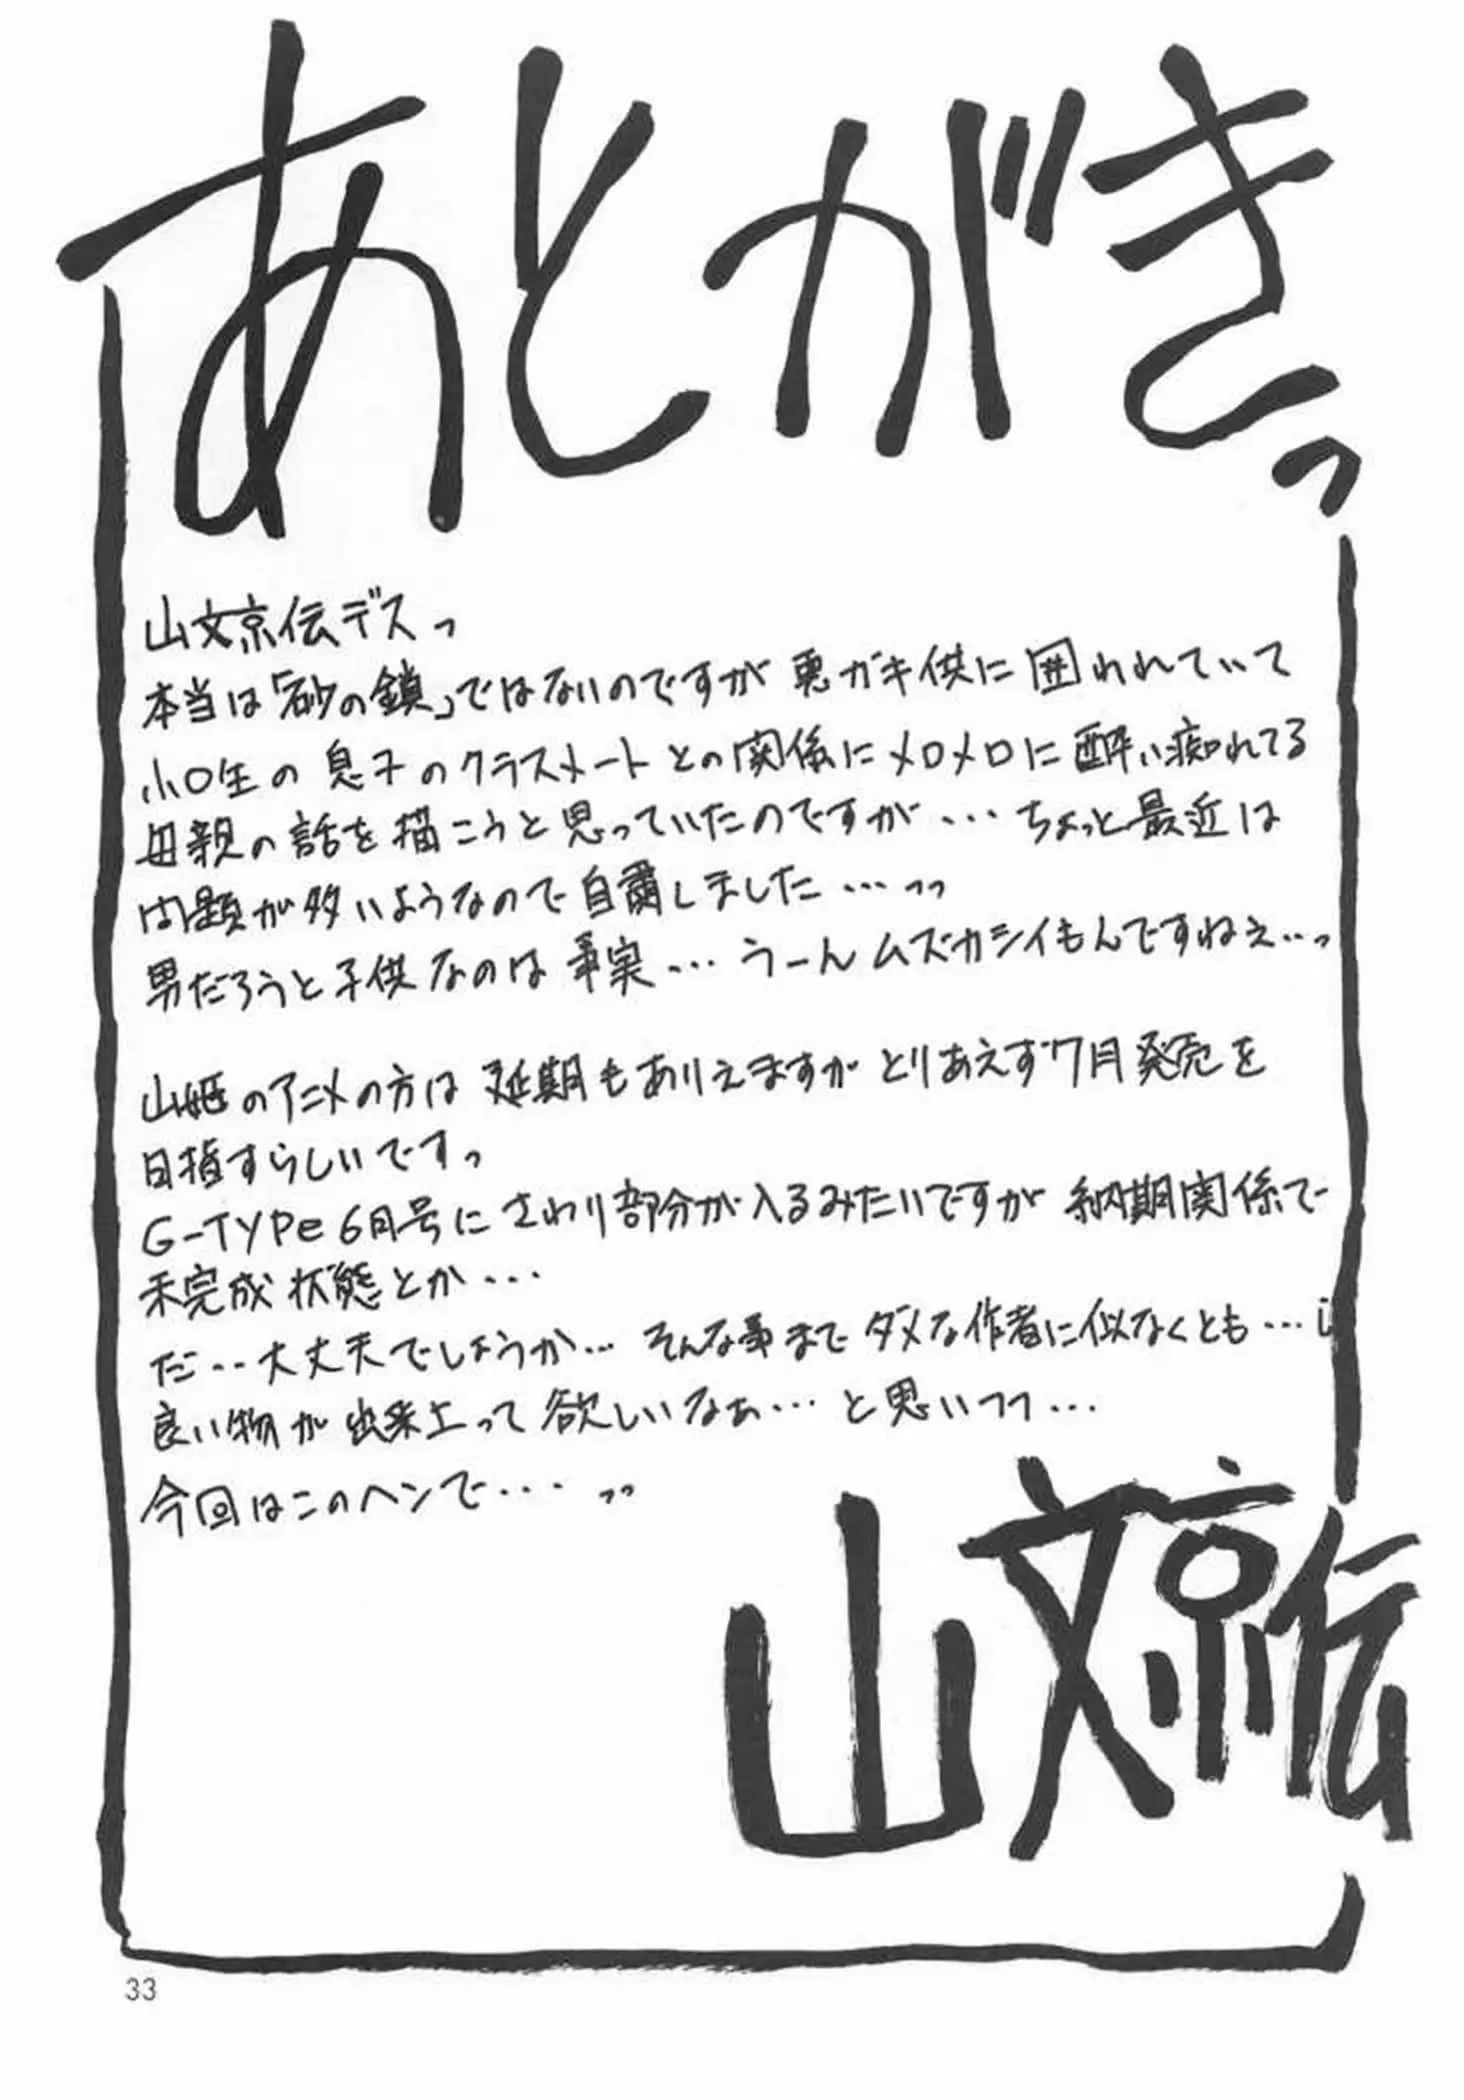 あとがきっ
山文京伝デスっ
本当は「砂の鎖」ではないのですが 悪ガキ供に囲われていて
小〇生の息子のクラスメートとの関係にメロメロに酔い痴れてる
母親の話を描こうと思っていたのですが・・・ちょっと最近は
問題が多いようなので自粛しました・・・っっ
男だろうと子供なのは事実・・・うーんムズカシイもんですねぇ・・っ
山姫のアニメの方は延期もありえますがとりあえず7月発売を
目指すらしいですっ
G-TYPe 6月号にさわり部分が入るみたいですが納期関係で
未完成状態とか・・・
だ・・大丈夫でしょうか・・・そんな事までダメな作者に似なくとも・・・
良い物が出来上って欲しいなぁ・・・と思いつつ・・・
今回はこのヘンで・・・っっ
山文京伝
33